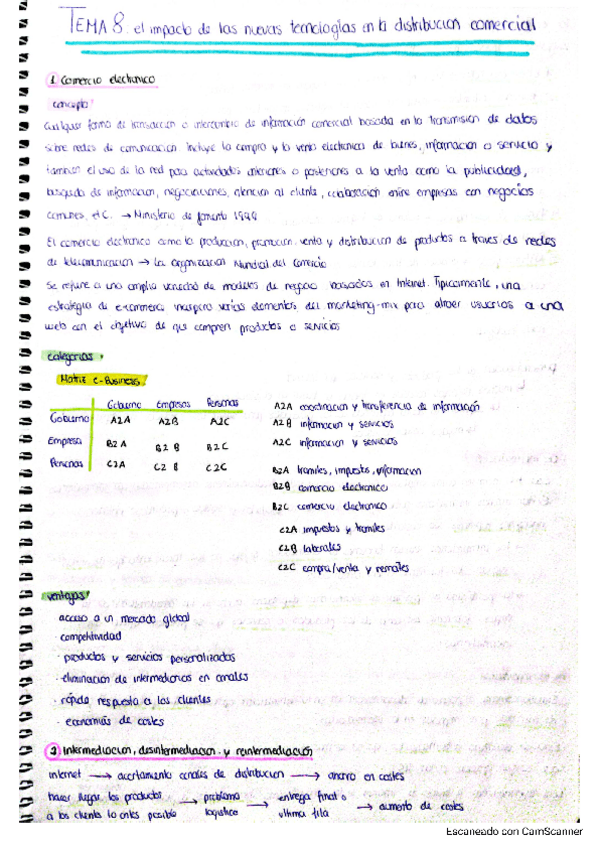 TEMA 8. el impacto de las nuevas tecnologías en la distribucion comercial
1. Comercio electronico
concepto:
Cualquier forma de transaccion o intercambio de informacion comercial basada en la transmision de datos
sobre redes de comunicacion incluye la compra y la venta electronica de bienes, informacion o servicio y
tambien el uso de la red para actividades anteriores o posteriores a la venta como la publicidad,
busqueda de informacion, negociaciones, atencion al cliente, colaboracion entre empresas con negocios
comunes, etc. → Ministerio de fomento 1999
El comercio electronico como la produccion, promocion, venta y distribucion de productos a traves de redes
de telecomunicacion → La organizacion Mundial del comercio
Se refiere a una amplia variedad de modelos de negocio basados en Internet. Tipicamente, una
estrategia de e-commerce incorpora varios elementos del marketing-mix para atraer usuarios a una
web con el objetivo de que compren productos o servicios
categorias:
Matriz e-Business
Gobierno Empresas Personas
Gobierno A2A A2B A2C
Empresa B2A B2B B2C
Personas C2A C2B C2C
A2A coordinacion y transferencia de información
A2B informacion y servicios
A2C informacion y servicios
B2A tramites, impuestos, informacion
B2B comercio electronico
B2C comercio electronico
C2A impuestos y tramites
C2B laborales
C2C compra/venta y remates
ventajas:
acceso a un mercado global
· competitividad
· productos y servicios personalizados
· eliminacion de intermediarios en canales
· rápida respuesta a los clientes
· economías de costes
2. Intermediacion, desintermediacion y reintermediación
internet → acortamiento canales de distribucion → ahorro en costes
hacer llegar los productos a los clientes lo antes posible → problema logistico → entrega final o ultima milla → aumento de costes
Escaneado con CamScanner